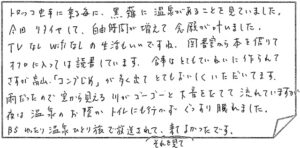 トロッコ電車に乗る毎に、黒薙に温泉があることを見ていました。
今回リタイヤして、自由時間が増えて念願が叶いました。
TVなしWifiなしの生活もいいですね。図書室から本を借りて
オフロに入っては読書しています。食事はとてもていねいに作られて
さすが富山、「コンブじめ」が多く出てとてもおいしくいただいてます。
雨だったので窓から見える川がゴーゴーと大音をたてて流れていますが
夜は温泉のお陰かトイレにも行かずぐっすり眠れました。
BSわたし温泉ひとり旅で放送されて、来てよかったです。
それを見て